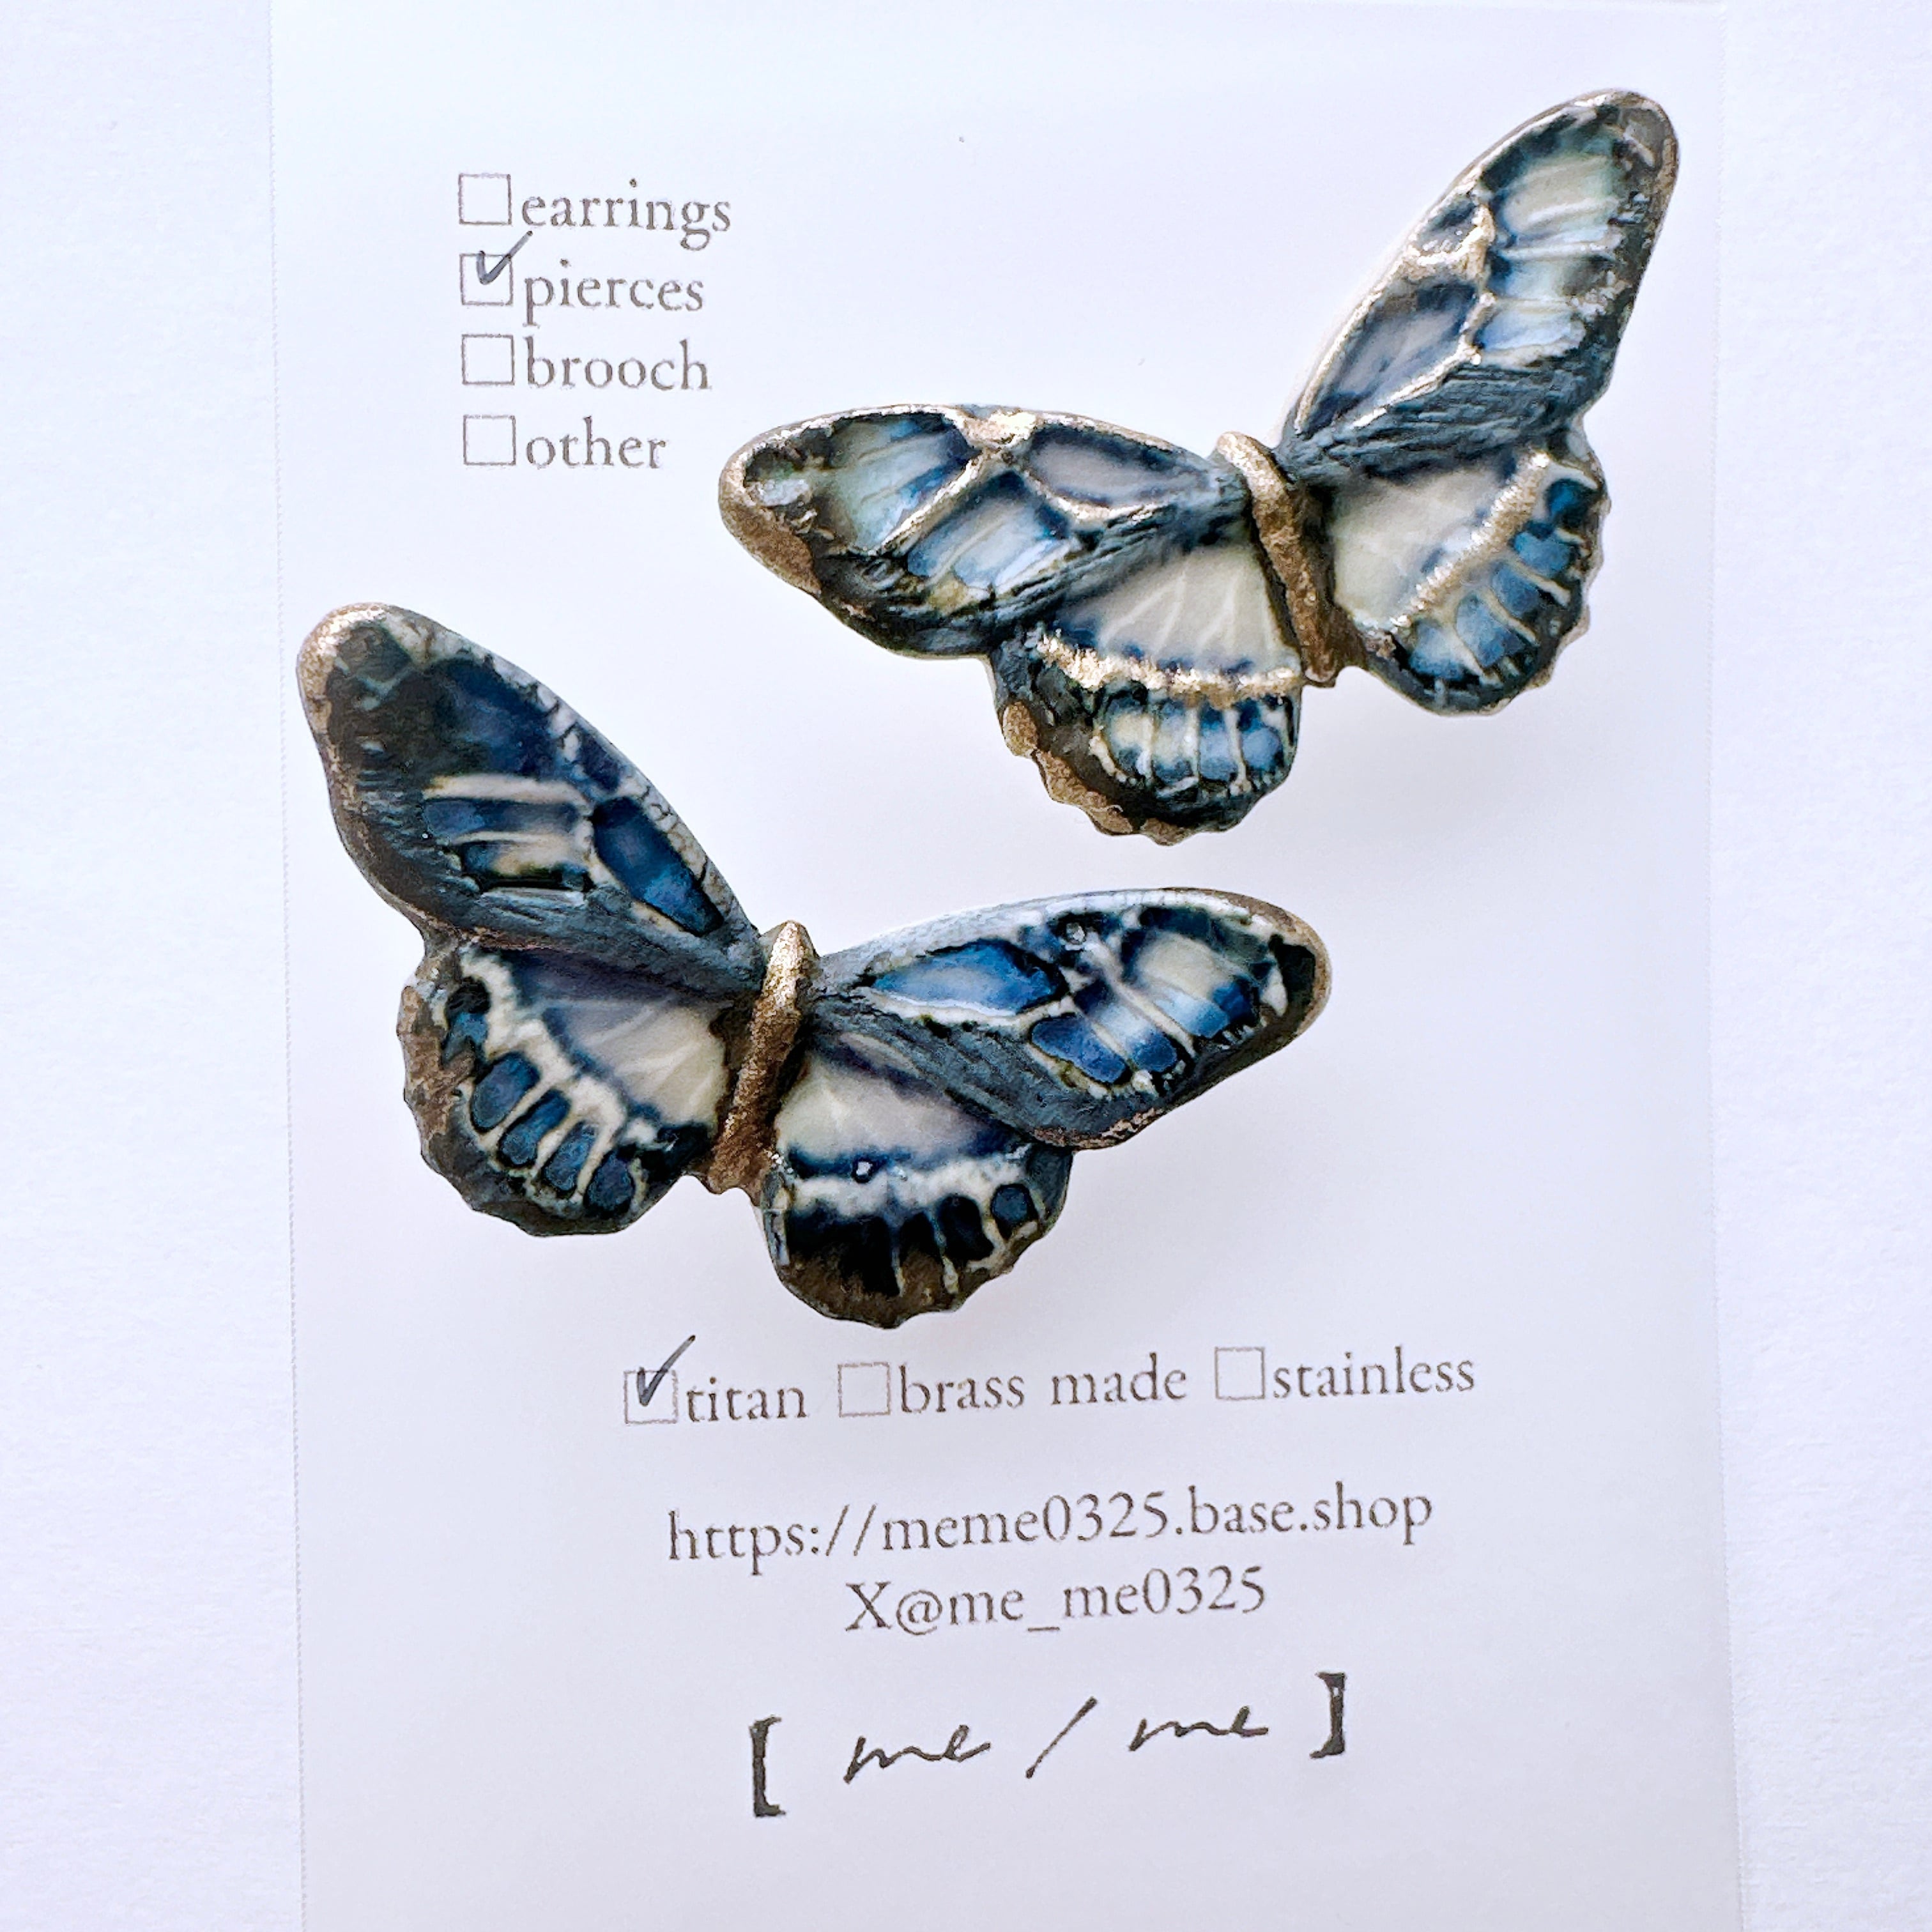 ☐earrings
☑pierces
☐brooch
☐other
☑titan ☐brass made ☐stainless
https://meme0325.base.shop
X@me_me0325
[ me / me ]